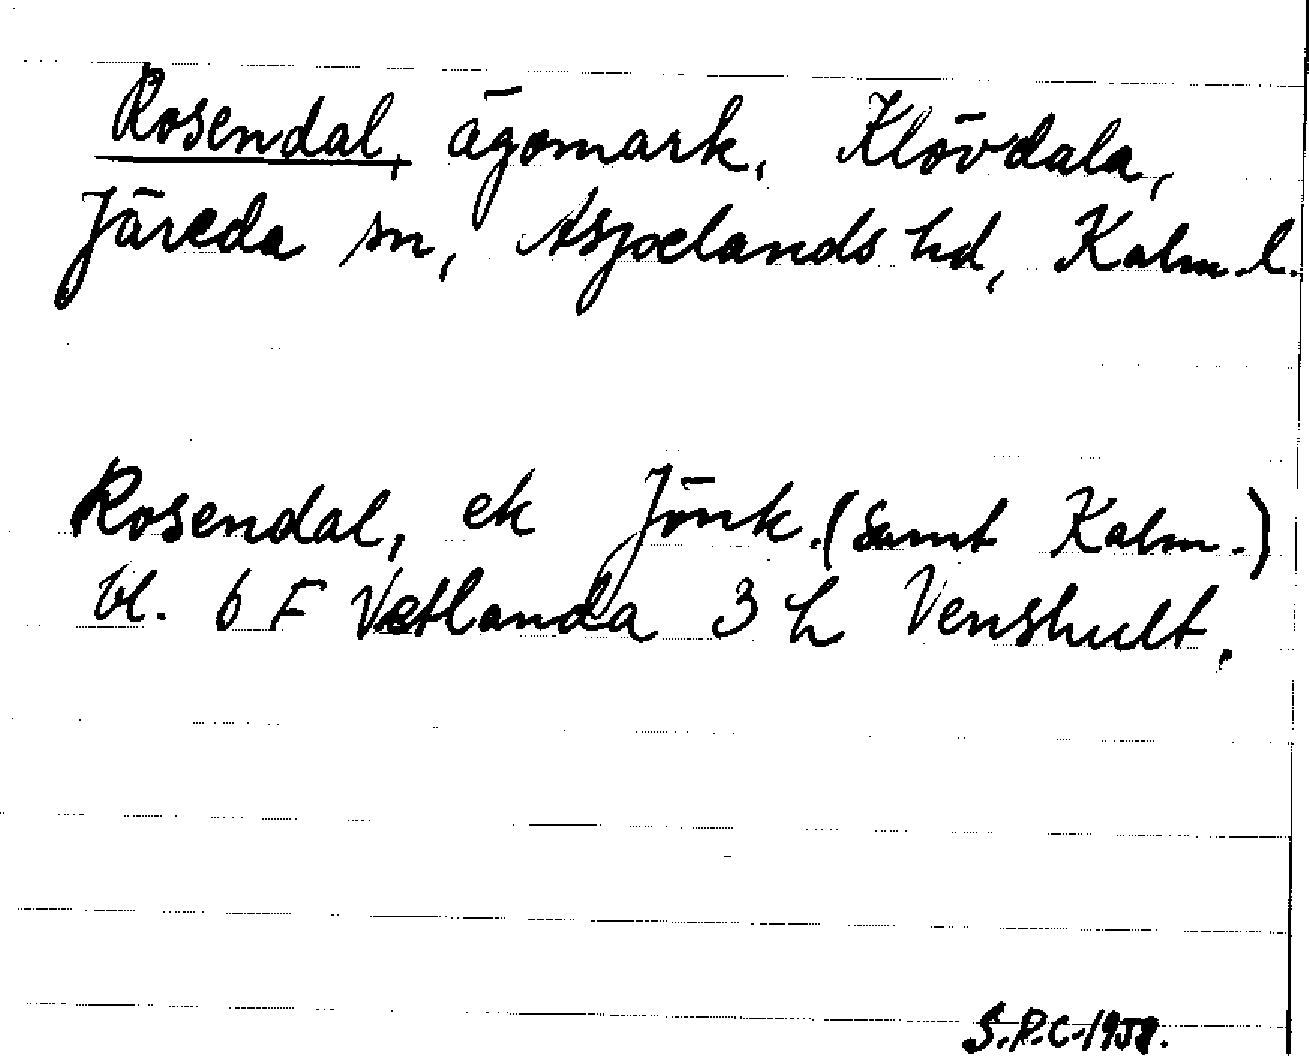 Rosendal, ägomark, Klövdala,
Järeda sn, Aspelands hd, Kalm. l.
Rosendal, ek Jönk. (samt Kalm.)
bl. 6 F Vetlanda 3 h Venshult.
S.P.C. 1958.